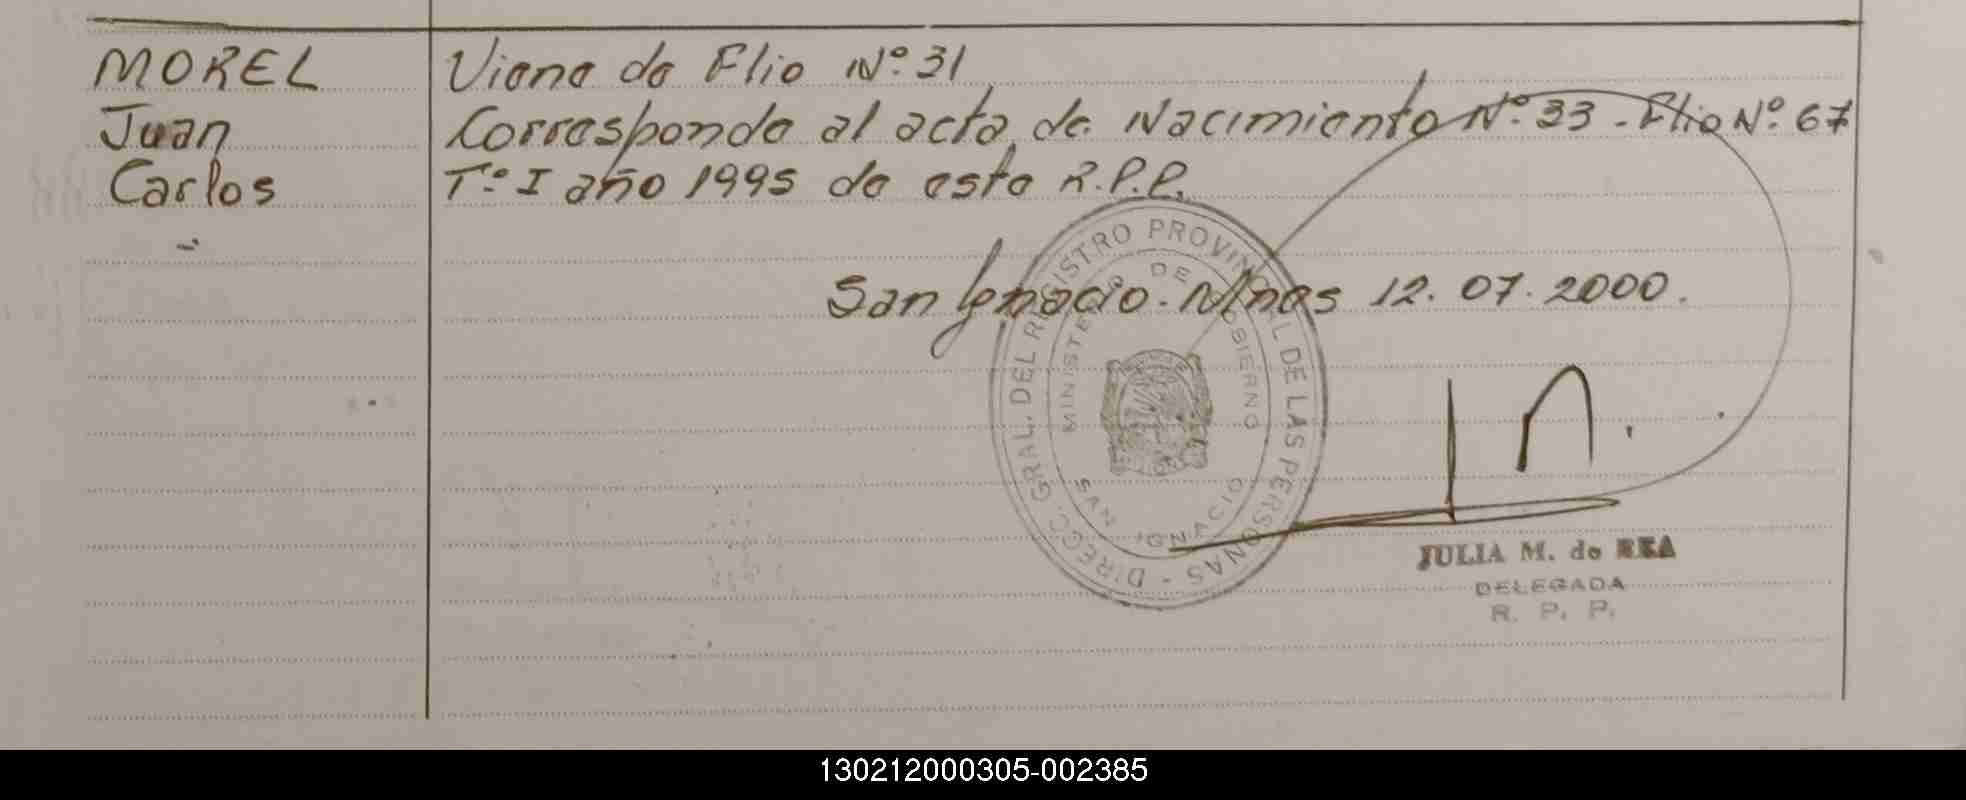 MOREL
Juan
Carlos
Viene de Flio Nº 31
Corresponde al acta de Nacimiento Nº 33 - Flio Nº 67
Tº I año 1995 de este R.P.P.
San Ignacio - Mnes 12.07.2000.
DIREC. GRAL. DEL REGISTRO PROVINCIAL DE LAS PERSONAS -
MINISTERIO DE GOBIERNO
SAN IGNACIO
JULIA M. de REA
DELEGADA
R. P. P.
130212000305-002385